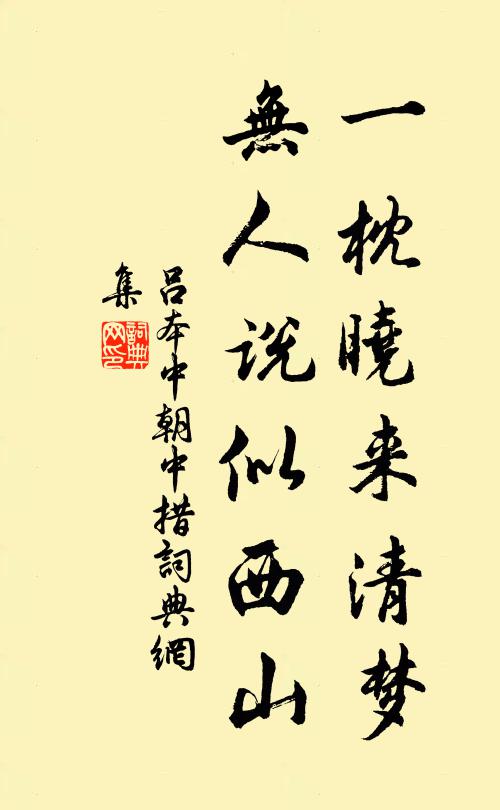 一枕曉来清梦
無人说似西山
吕本中朝中措詞典網
集
詞典网印